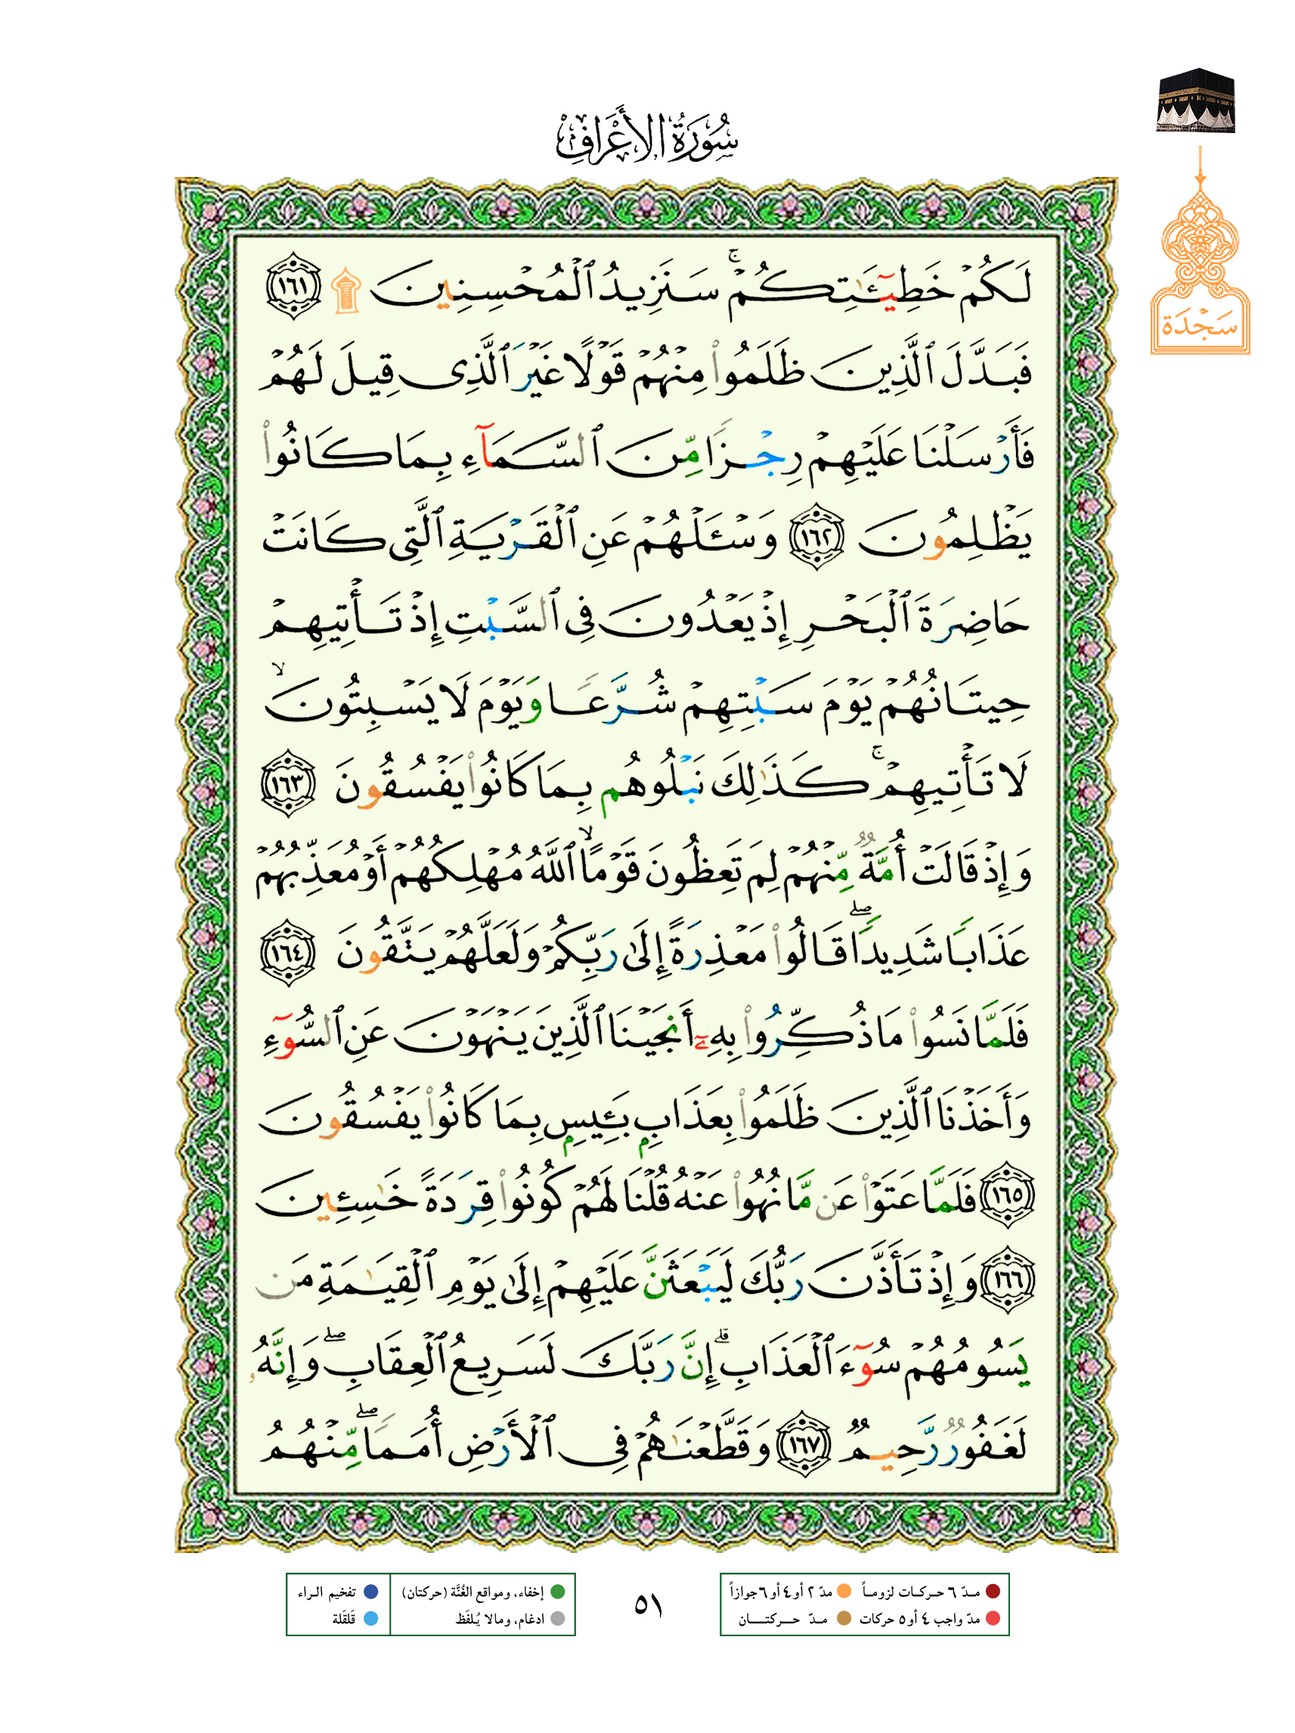 سُورَةُ الأَعْرَافِ
سَجْدَة
لَكُمْ خَطِيٓـَٰٔتِكُمْ ۚ سَنَزِيدُ ٱلْمُحْسِنِينَ ۞ ١٦١
فَبَدَّلَ ٱلَّذِينَ ظَلَمُوا۟ مِنْهُمْ قَوْلًا غَيْرَ ٱلَّذِى قِيلَ لَهُمْ
فَأَرْسَلْنَا عَلَيْهِمْ رِجْزًا مِّنَ ٱلسَّمَآءِ بِمَا كَانُوا۟
يَظْلِمُونَ ١٦٢ وَسْـَٔلْهُمْ عَنِ ٱلْقَرْيَةِ ٱلَّتِى كَانَتْ
حَاضِرَةَ ٱلْبَحْرِ إِذْ يَعْدُونَ فِى ٱلسَّبْتِ إِذْ تَأْتِيهِمْ
حِيتَانُهُمْ يَوْمَ سَبْتِهِمْ شُرَّعًا وَيَوْمَ لَا يَسْبِتُونَ ۙ
لَا تَأْتِيهِمْ ۚ كَذَٰلِكَ نَبْلُوهُم بِمَا كَانُوا۟ يَفْسُقُونَ ١٦٣
وَإِذْ قَالَتْ أُمَّةٌ مِّنْهُمْ لِمَ تَعِظُونَ قَوْمًا ۙ ٱللَّهُ مُهْلِكُهُمْ أَوْ مُعَذِّبُهُمْ
عَذَابًا شَدِيدًا ۖ قَالُوا۟ مَعْذِرَةً إِلَىٰ رَبِّكُمْ وَلَعَلَّهُمْ يَتَّقُونَ ١٦٤
فَلَمَّا نَسُوا۟ مَا ذُكِّرُوا۟ بِهِۦٓ أَنجَيْنَا ٱلَّذِينَ يَنْهَوْنَ عَنِ ٱلسُّوٓءِ
وَأَخَذْنَا ٱلَّذِينَ ظَلَمُوا۟ بِعَذَابٍۭ بَـِٔيسٍۭ بِمَا كَانُوا۟ يَفْسُقُونَ
١٦٥ فَلَمَّا عَتَوْا۟ عَن مَّا نُهُوا۟ عَنْهُ قُلْنَا لَهُمْ كُونُوا۟ قِرَدَةً خَٰسِـِٔينَ
١٦٦ وَإِذْ تَأَذَّنَ رَبُّكَ لَيَبْعَثَنَّ عَلَيْهِمْ إِلَىٰ يَوْمِ ٱلْقِيَٰمَةِ مَن
يَسُومُهُمْ سُوٓءَ ٱلْعَذَابِ ۗ إِنَّ رَبَّكَ لَسَرِيعُ ٱلْعِقَابِ ۖ وَإِنَّهُۥ
لَغَفُورٌ رَّحِيمٌ ١٦٧ وَقَطَّعْنَٰهُمْ فِى ٱلْأَرْضِ أُمَمًا ۖ مِّنْهُمُ
مـدّ ٦ حـركـات لزومـاً مدّ ٢ أو ٤ أو ٦ جوازاً
مدّ واجب ٤ أو ٥ حركات مـدّ حـــركتـــــان
٥١
إخفاء، ومواقع الغُنَّة (حركتان) تفخيم الـراء
ادغام، ومالا يُـلفَظ قلقَلة